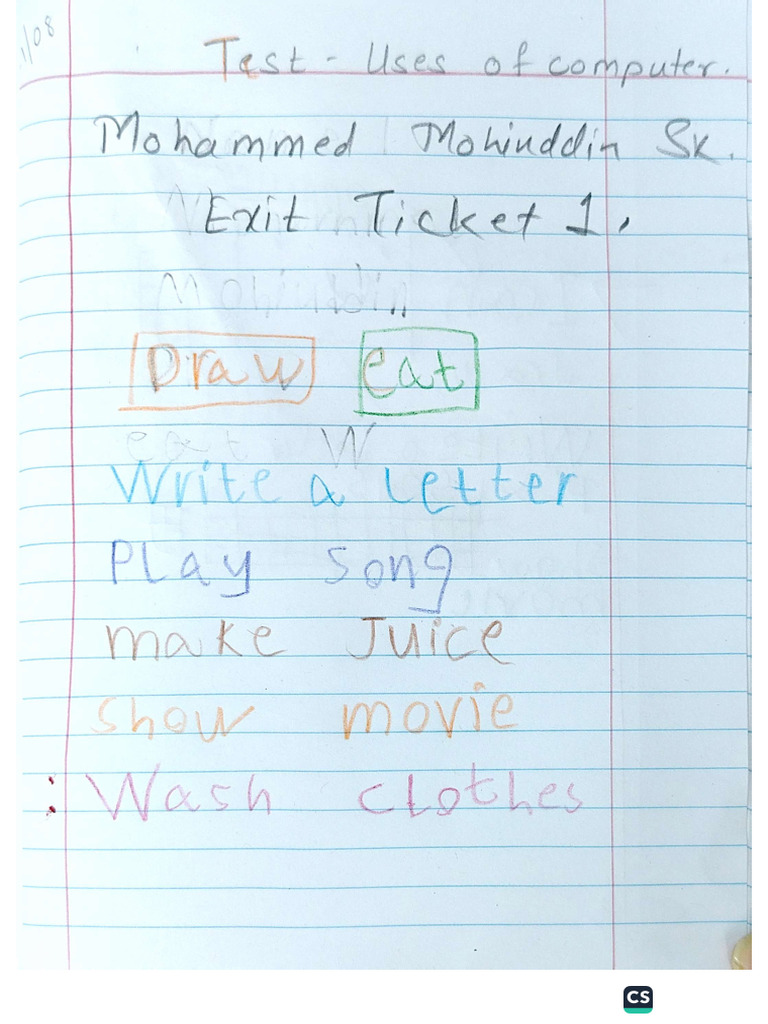 /08
Test - Uses of computer.
Mohammed Mohiuddin Sk.
Exit Ticket 1.
Mohiuddin
Draw eat
eat W
Write a letter
Play song
make Juice
show movie
: Wash clothes
CS